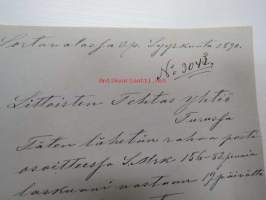 Sortavalassa Syyskuuta 1890.
No 3042
Littoisten Tehtas yhtiö
Turussa
Täten lähetän rahaa posti
osoitteessa S.Mrk 156.52 penniä
laskuani vastaan 19 päivältä